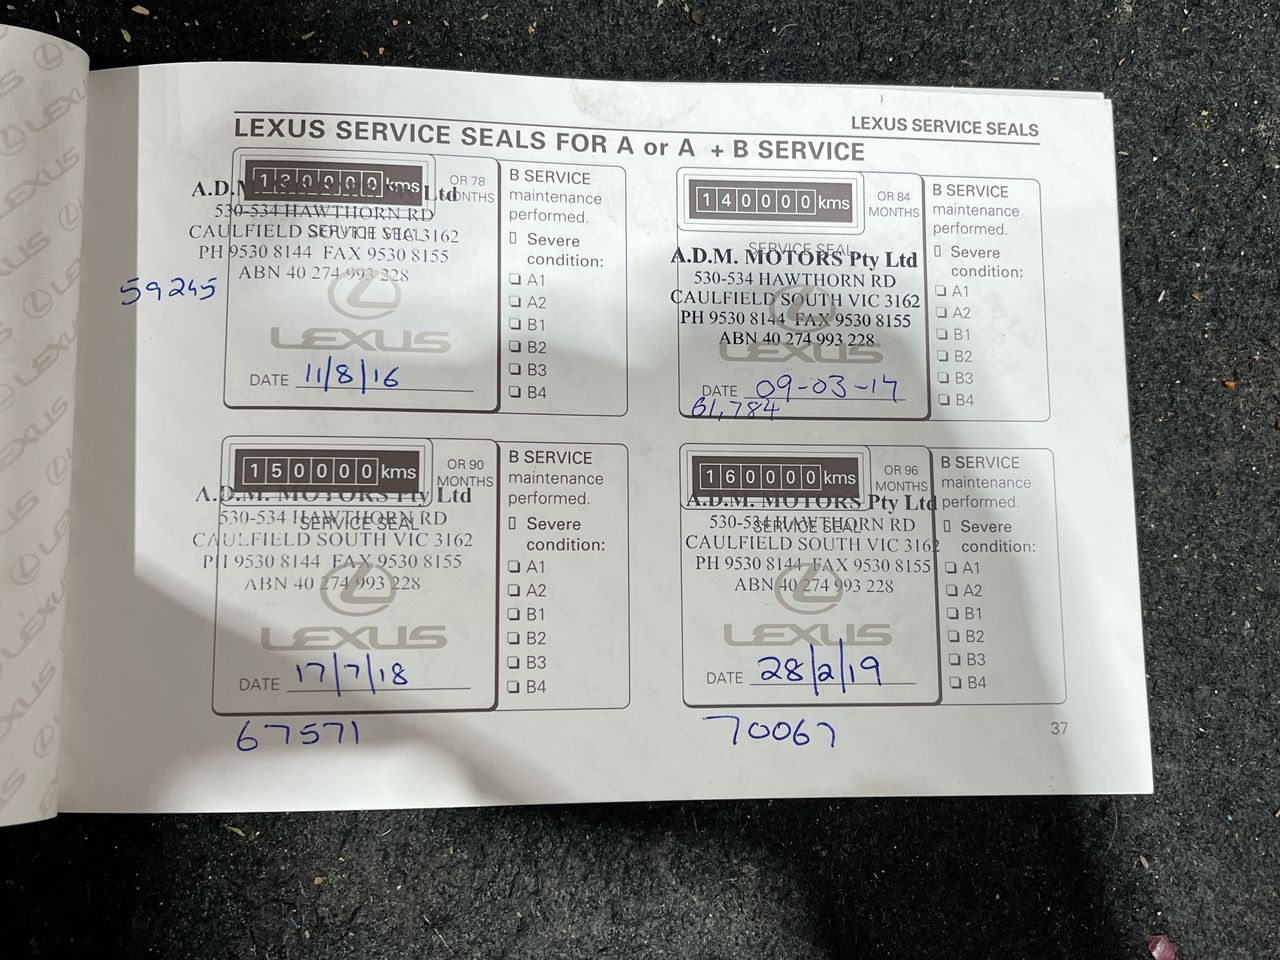 LEXUS SERVICE SEALS
LEXUS SERVICE SEALS FOR A or A + B SERVICE
130000 kms
OR 78
MONTHS
A.D.M. MOTORS Pty Ltd
530-534 HAWTHORN RD
SERVICE SEAL
CAULFIELD SOUTH VIC 3162
PH 9530 8144 FAX 9530 8155
ABN 40 274 993 228
59245
LEXUS
DATE 11/8/16
B SERVICE
maintenance
performed.
Severe
condition:
A1
A2
B1
B2
B3
B4
140000 kms
OR 84
MONTHS
SERVICE SEAL
A.D.M. MOTORS Pty Ltd
530-534 HAWTHORN RD
CAULFIELD SOUTH VIC 3162
PH 9530 8144 FAX 9530 8155
ABN 40 274 993 228
LEXUS
DATE 09-03-17
61,784
B SERVICE
maintenance
performed.
Severe
condition:
A1
A2
B1
B2
B3
B4
150000 kms
OR 90
MONTHS
A.D.M. MOTORS Pty Ltd
530-534 HAWTHORN RD
SERVICE SEAL
CAULFIELD SOUTH VIC 3162
PH 9530 8144 FAX 9530 8155
ABN 40 274 993 228
LEXUS
DATE 17/7/18
67571
B SERVICE
maintenance
performed.
Severe
condition:
A1
A2
B1
B2
B3
B4
160000 kms
OR 96
MONTHS
A.D.M. MOTORS Pty Ltd
530-534 HAWTHORN RD
SERVICE SEAL
CAULFIELD SOUTH VIC 3162
PH 9530 8144 FAX 9530 8155
ABN 40 274 993 228
LEXUS
DATE 28/2/19
70067
B SERVICE
maintenance
performed.
Severe
condition:
A1
A2
B1
B2
B3
B4
37